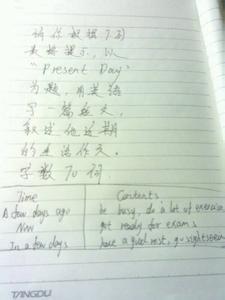 请你根据下列
表格提示，以
"Present Day"
为题，用英语
写一篇短文，
叙述他这期
的生活作文。
字数 70 词
Time Contents
A few days ago be busy, do a lot of exercise
Now get ready for exams
In a few days have a good rest, go sightseein
TANGDU